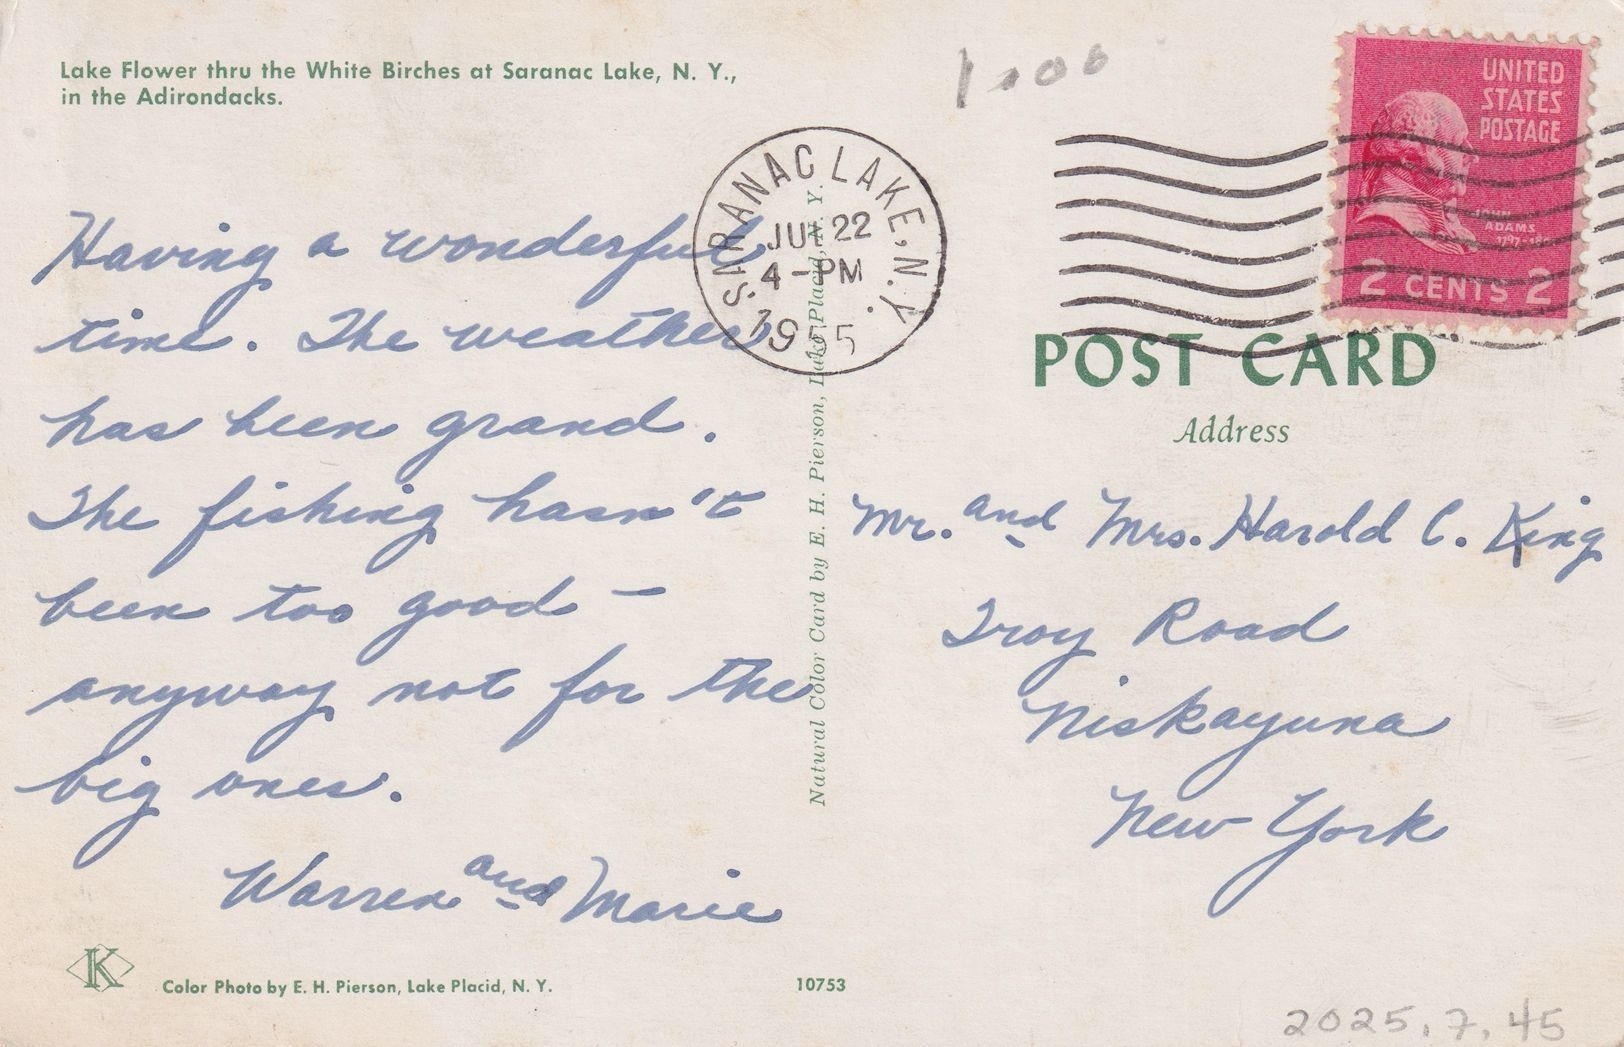 Lake Flower thru the White Birches at Saranac Lake, N. Y.,
in the Adirondacks.
1.00
SARANAC LAKE, N.Y.
22
4-PM
1955
UNITED
STATES
POSTAGE
ADAMS
2 CENTS 2
Having a wonderful
time. The weather
has been grand.
The fishing hasn't
been too good –
anyway not for the
big ones.
Warren and Marie
Natural Color Card by E. H. Pierson, Lake Placid, N. Y.
POST CARD
Address
Mr. and Mrs. Harold C. King
Troy Road
Niskayuna
New York
K
Color Photo by E. H. Pierson, Lake Placid, N. Y.
10753
2025.7.45